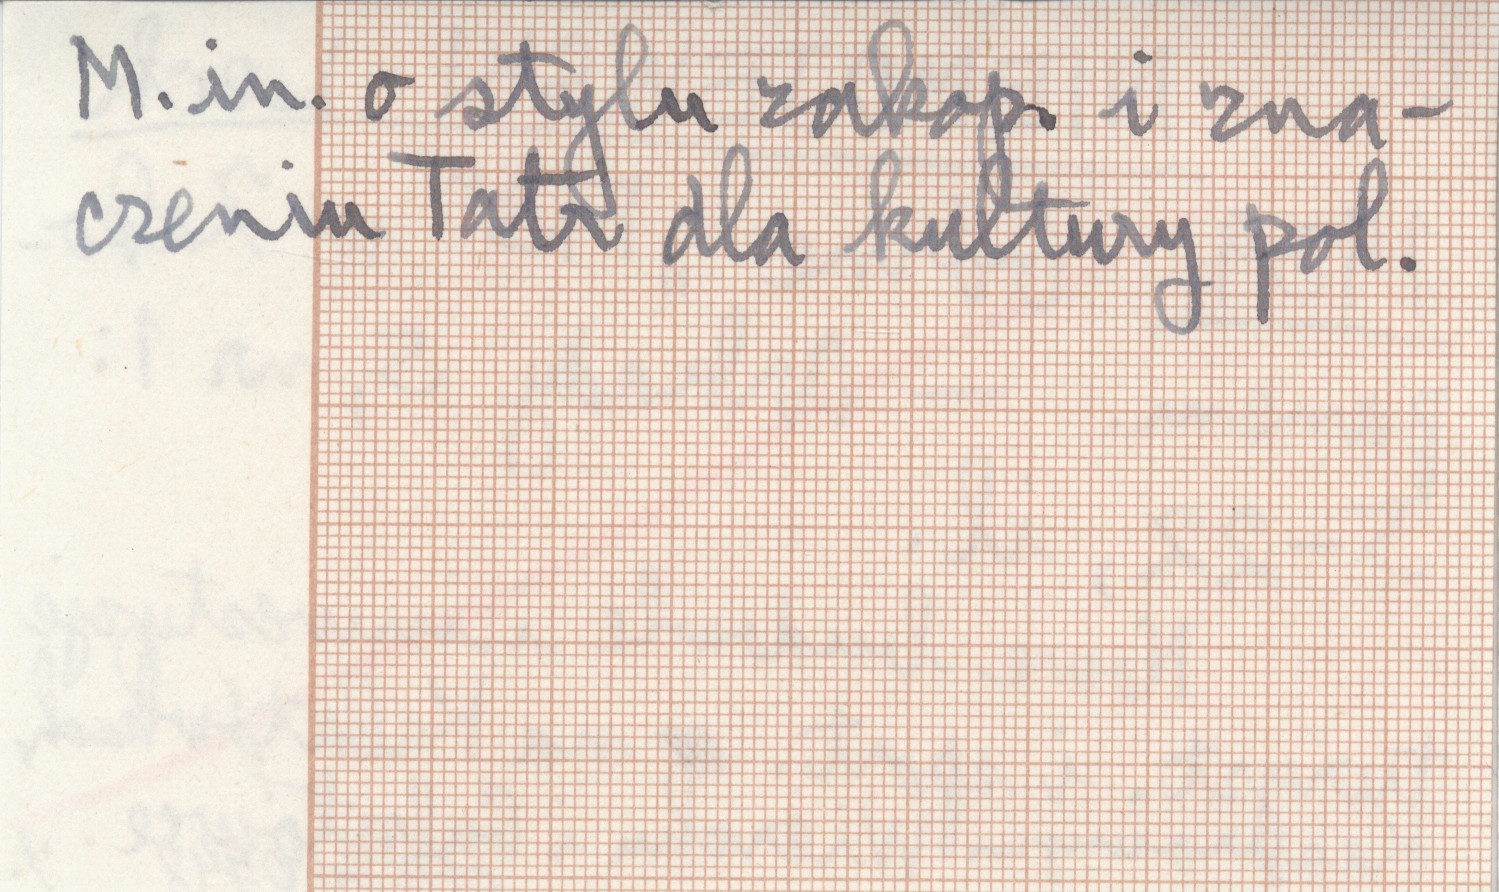 M. in. o stylu zakop. i zna-
czeniu Tatr dla kultury pol.